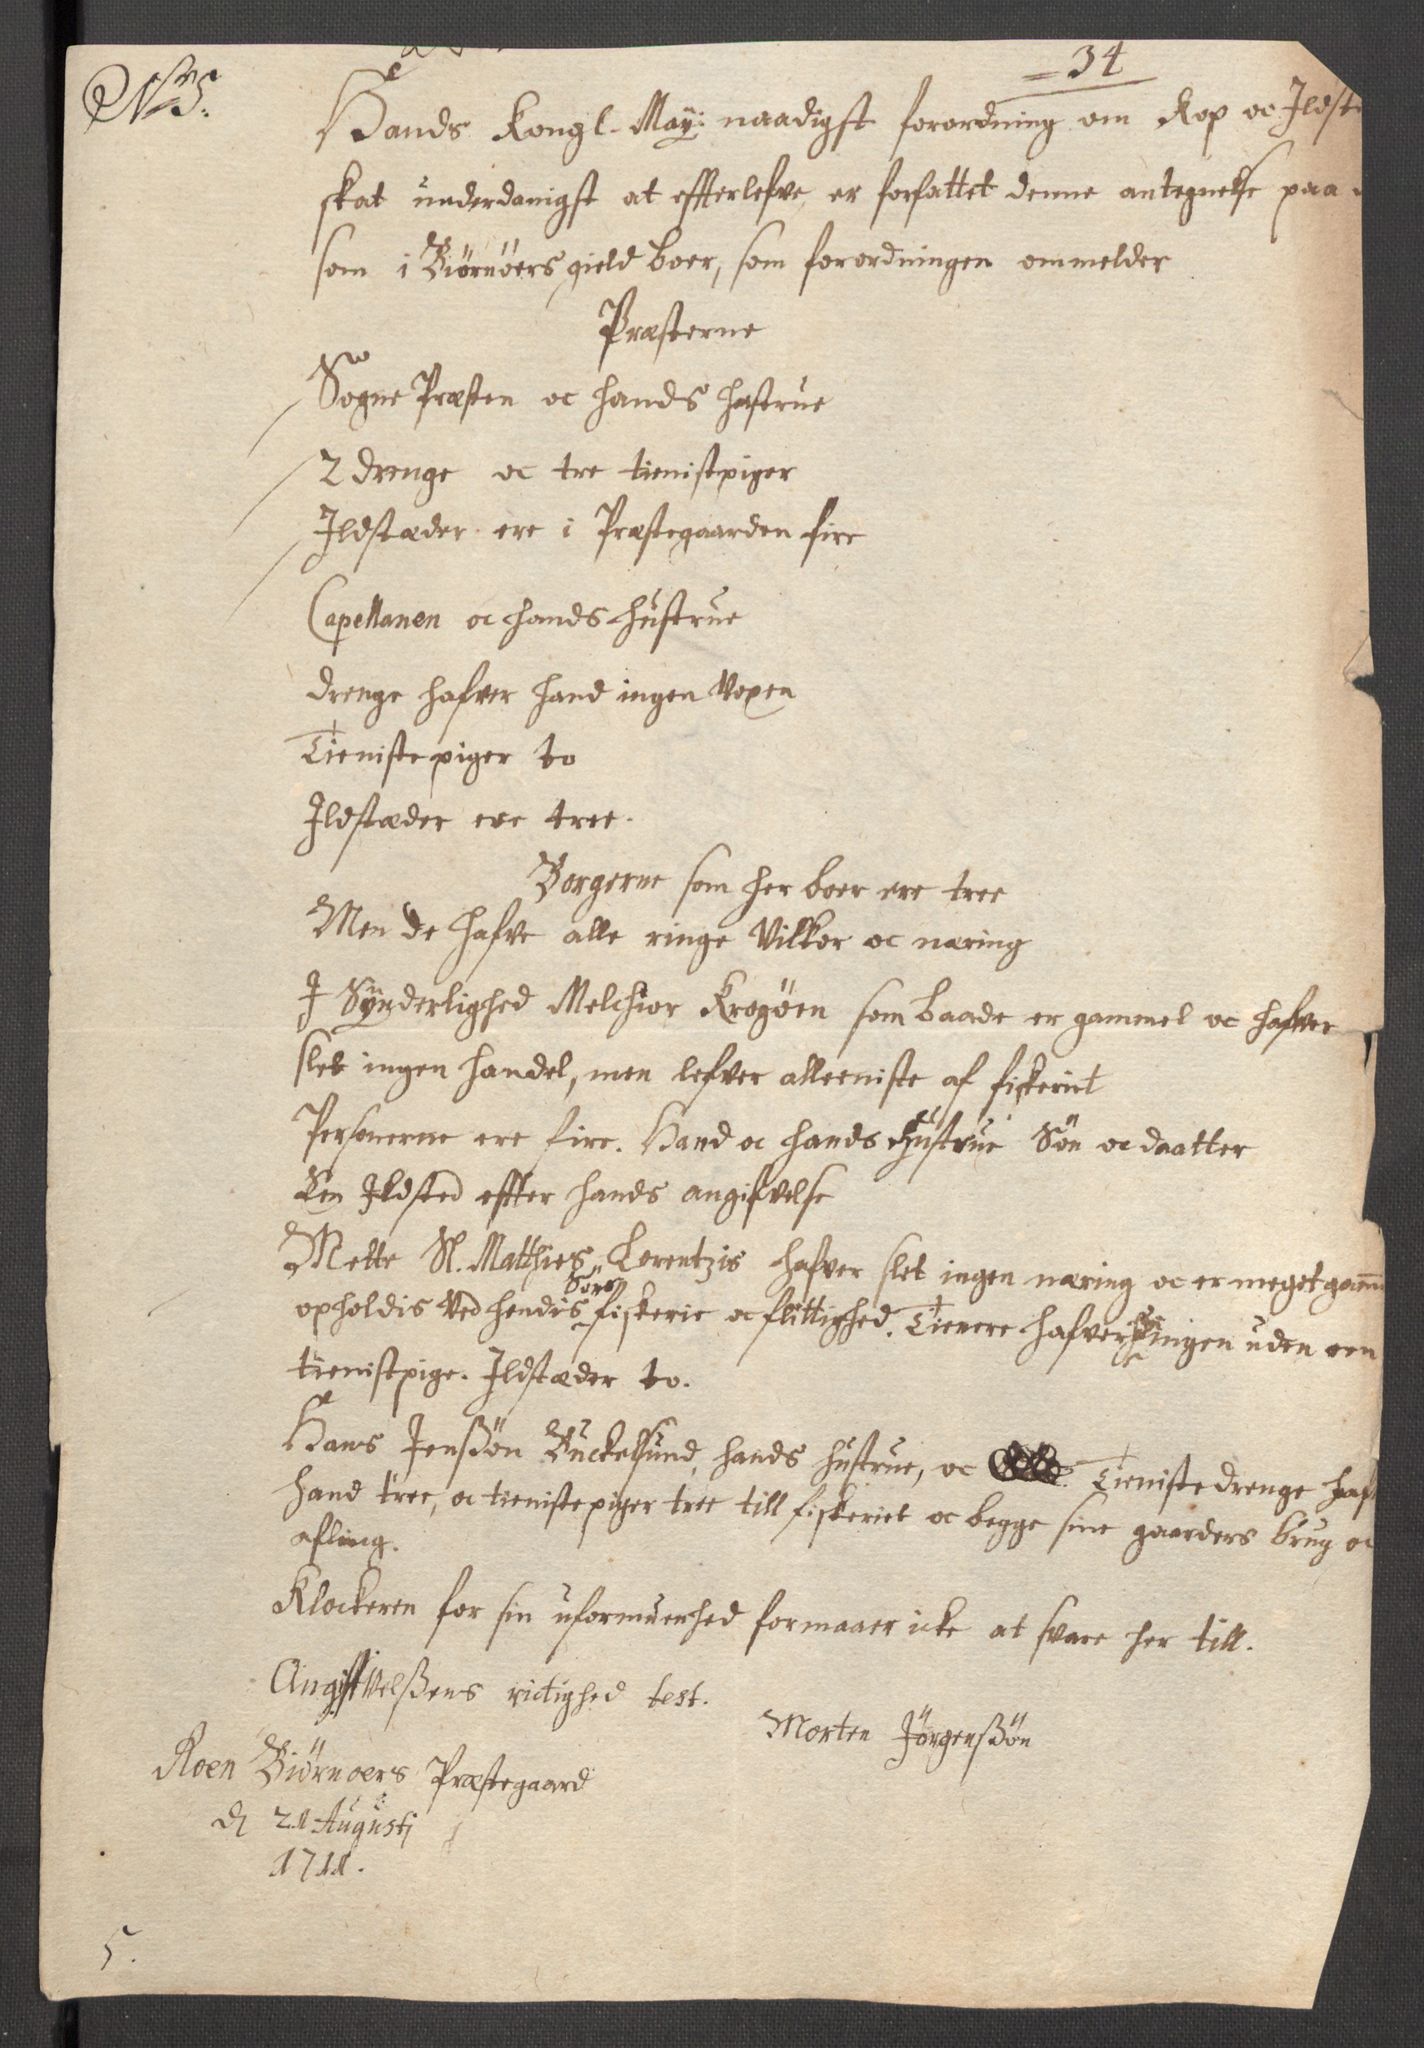 No 5.
34
Hands Kongl. May: naadigst forordning om Kop oc Ildst
skat underdanigst at effterlefve, er forfattet denne antegnelse paa
som i Biørnöers gield boer, som forordningen ommelder
Præsterne
Sogne Præsten oc hands hustrue
2 drenge oc tre tienistpiger
Ildstæder ere i Præstegaarden fire
Capellanen oc hands hustrue
drenge hafver hand ingen voxen
Tieniste piger to
Ildstæder ere tree.
Borgerne som her boer ere tree
Men de hafve alle ringe vilkor oc næring
I Synderlighed Melchior Krogöen som baade er gammel oc hafver
slet ingen handel, men lefver alleeniste af fiskeriet
Personerne ere fire. Hand oc hands Hustrue Sön oc daatter
Een Ildsted effter hands angifvelse
Mette Sl. Matthies Lorentzis hafver slet ingen næring oc er meget gam
opholdis ved hendis Söns fiskerie oc flittighed. Tienere hafver hun ingen uden een
tienistpige. Ildstæder to.
Hans Jenßön Buckelsund, hands hustrue, oc Tieniste drenge haf
hand tree, oc tienistepiger tree till fiskeriet oc begge sine gaarders brug oc
afling.
Klockeren for sin uformuenhed formaaer icke at svare her till.
Angifvelßens rictighed test.
Morten Jörgenßön
Roen Biörnoers Præstegaard
d 21 Augustj
1711.
5.